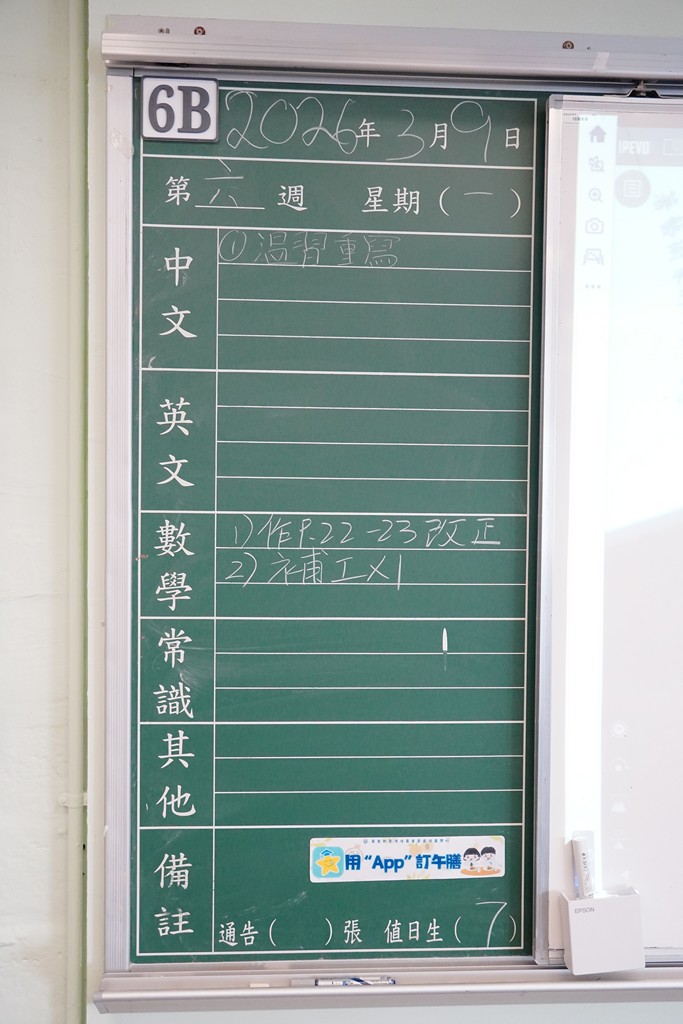 6B 2026年3月9日
第六週 星期(一)
中文
①温習重寫
英文
數學
1)作P.22-23改正
2)補工×1
常識
其他
備註
用“App”訂午膳
通告( )張 值日生(7)
IPEVO
EPSON